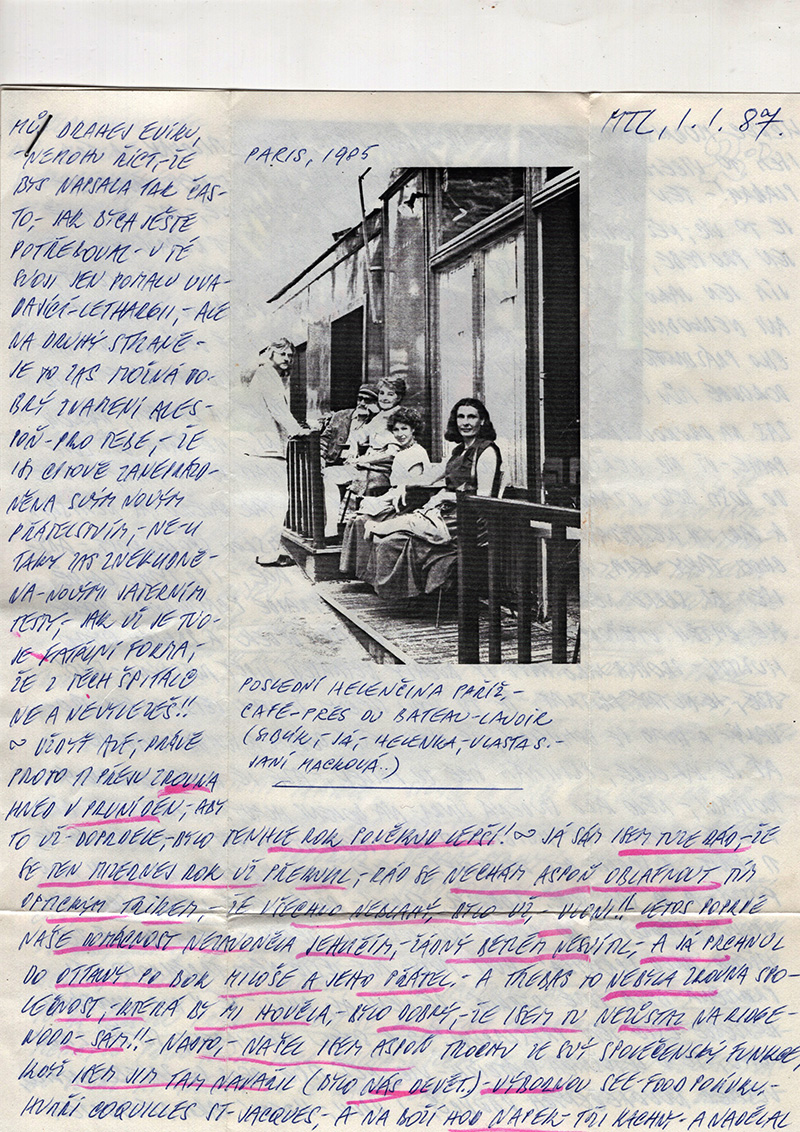 MTL, 1.1.87.
MŮJ DRAHEJ EVÍKU,
-NEMOHU ŘÍCT,-ŽE
BYS NAPSALA TAK ČAS-
TO,- JAK BYCH JEŠTĚ
POTŘEBOVAL- V TÉ
SVOJI JEN POMALU UVA-
DAJÍCÍ-LETHARGII,- ALE
NA DRUHÝ STRANĚ-
JE TO ZAS MOŽNÁ DO-
BRÝ ZNAMENÍ ALES-
POŇ-PRO TEBE,- ŽE
JSI CITOVĚ ZANEPRÁZD-
NĚNA SVÝM NOVÝM
PŘÁTELSTVÍM,- NE-LI
TAKY ZAS ZNEKLIDNĚ-
NA-NOVÝMI JATERNÍMI
TESTY,- JAK UŽ JE TVO-
JE FATÁLNÍ FORMA,-
ŽE Z TĚCH ŠPITÁLŮ
NE A NEVYLEZEŠ!!
~ VŽDYŤ ALE, PRÁVĚ
PROTO TI PŘEJU ZROVNA
HNED V PRVNÍ DEN,- ABY
PARIS, 1985
POSLEDNÍ HELENČINA PAŘÍŽ,-
CAFÉ-PRES DU BATEAU-LAVOIR
(JÁ,- HELENKA,- VLASTA S.-
JANÍ MACKOVÁ..)
TO UŽ-DOPRDELE,-BYLO TENHLE ROK PONĚKUD LEPŠÍ! ~ JÁ SÁM JSEM TUZE RÁD,- ŽE
SE TEN MIZERNEJ ROK UŽ PŘEHNUL,- RÁD SE NECHÁM ASPOŇ OBLAFNOUT TÍM
OPTICKÝM TRIKEM,- ŽE VŠECHNO NEBLAHÝ, BYLO UŽ,- VLONI!! LETOS POPRVÉ
NAŠE DOMÁCNOST NEZAVONĚLA JEHLIČÍM,- ŽÁDNÝ BETLÉM NESVÍTIL,- A JÁ PRCHNUL
DO OTTAWY PO BOK MILOŠE A JEHO PŘÁTEL.- A TŘEBAS TO NEBYLA ZROVNA SPO-
LEČNOST,- KTERÁ BY MI HOVĚLA,- BYLO DOBRÝ,- ŽE JSEM TU NEZŮSTAL NA RIDGE-
WOOD-SÁM!!- NADTO,- NAŠEL JSEM ASPOŇ TROCHU ZE SVÝ SPOLEČENSKÝ FUNKCE,
KDYŽ JSEM JIM TAM NAVAŘIL (BYLO NÁS DEVĚT.)- VÝBORNOU SEE-FOOD POLÍVKU,-
COQUILLES ST-JACQUES,- A NA BOŽÍ HOD NAPEK- TŘI KACHNY- A NADĚLAL